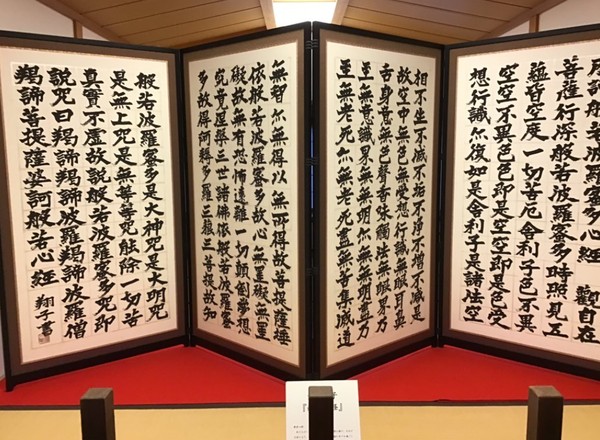 摩訶般若波羅蜜多心經 觀自在
菩薩行深般若波羅蜜多時照見五
蘊皆空度一切苦厄舎利子色不異
空空不異色色即是空空即是色受
想行識亦復如是舎利子是諸法空
相不生不滅不垢不浄不増不減是
故空中無色無受想行識無眼耳鼻
舌身意無色聲香味觸法無眼界乃
至無意識界無無明亦無無明盡乃
至無老死亦無老死盡無苦集滅道
無智亦無得以無所得故菩提薩埵
依般若波羅蜜多故心無罣礙無罣
礙故無有恐怖遠離一切顛倒夢想
究竟涅槃三世諸佛依般若波羅蜜
多故得阿耨多羅三藐三菩提故知
般若波羅蜜多是大神呪是大明呪
是無上呪是無等等呪能除一切苦
真實不虚故説般若波羅蜜多呪即
説呪曰羯諦羯諦波羅羯諦波羅僧
羯諦菩提薩婆訶般若心經 翔子書